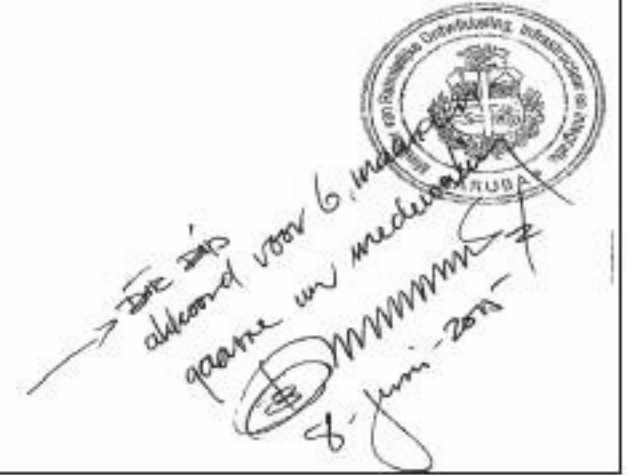 Minister van Ruimtelijke Ontwikkeling, Infrastructuur en Integratie
ARUBA
akkoord voor 6 maanden
gaarne uw medewerking
8-juni-2015